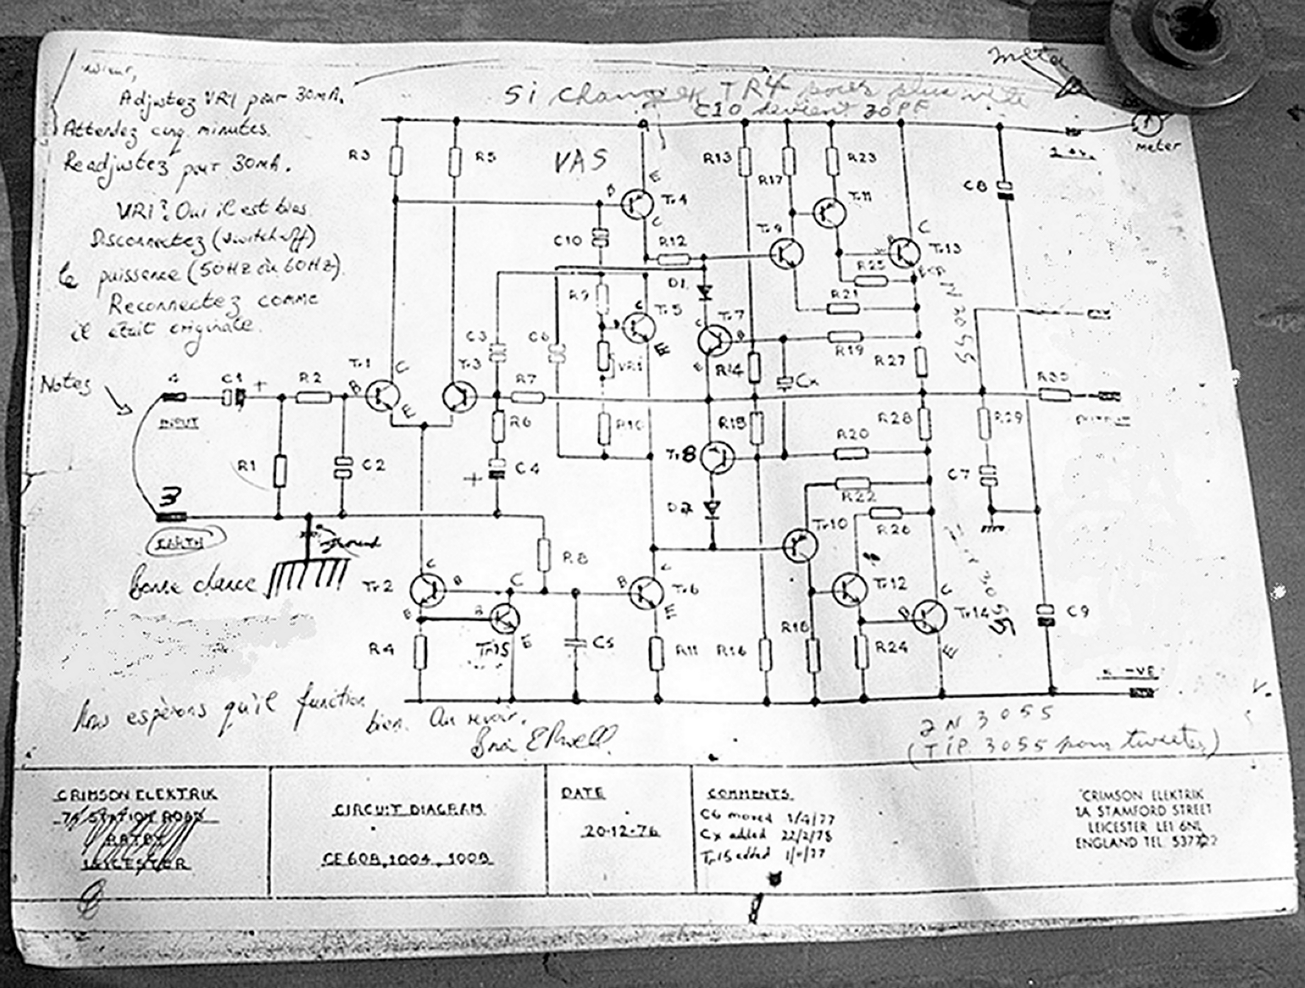 Adjustez VR1 pour 30mA.
Attendez cinq minutes.
Readjustez pour 30mA.
VR1? Oui il est bias.
Disconnectez (switch off)
le puissance (50Hz ou 60Hz).
Reconnectez comme
il était originale.
Notes
Si changer TR4 pour plus vite
C10 devient 30PF
meter
VAS
R3
R5
E
Tr4
C
C10
R12
R13
R17
R23
Tr11
Tr9
C
Tr13
R25
R21
C8
D1
R9
Tr5
E
VR1
C3
C6
Tr7
R14
Cx
R19
R27
N 3055
INPUT
C1 +
R2
Tr1
B
C
E
Tr3
R7
R6
+
C4
R10
R15
R28
R29
R30
R1
C2
Tr8
R20
C7
D2
R22
R26
3
EARTH
ground
Bonne chance
R8
Tr2
C
B
E
Tr15
B
C
E
C5
B
C
Tr6
E
Tr10
Tr12
B
C
Tr14
E
3055
C9
R4
R11
R16
R18
R24
-VE
Nous espérons qu'il function
bien. Au revoir.
2N 3055
(TIP 3055 pour tweeter)
CRIMSON ELEKTRIK
74 STATION ROAD
RATBY
LEICESTER
CIRCUIT DIAGRAM
CE608, 1004, 1009
DATE
20-12-76
COMMENTS
C6 moved
Cx added 22/2/78
Tr15 added
CRIMSON ELEKTRIK
1A STAMFORD STREET
LEICESTER LE1 6NL
ENGLAND TEL 537722